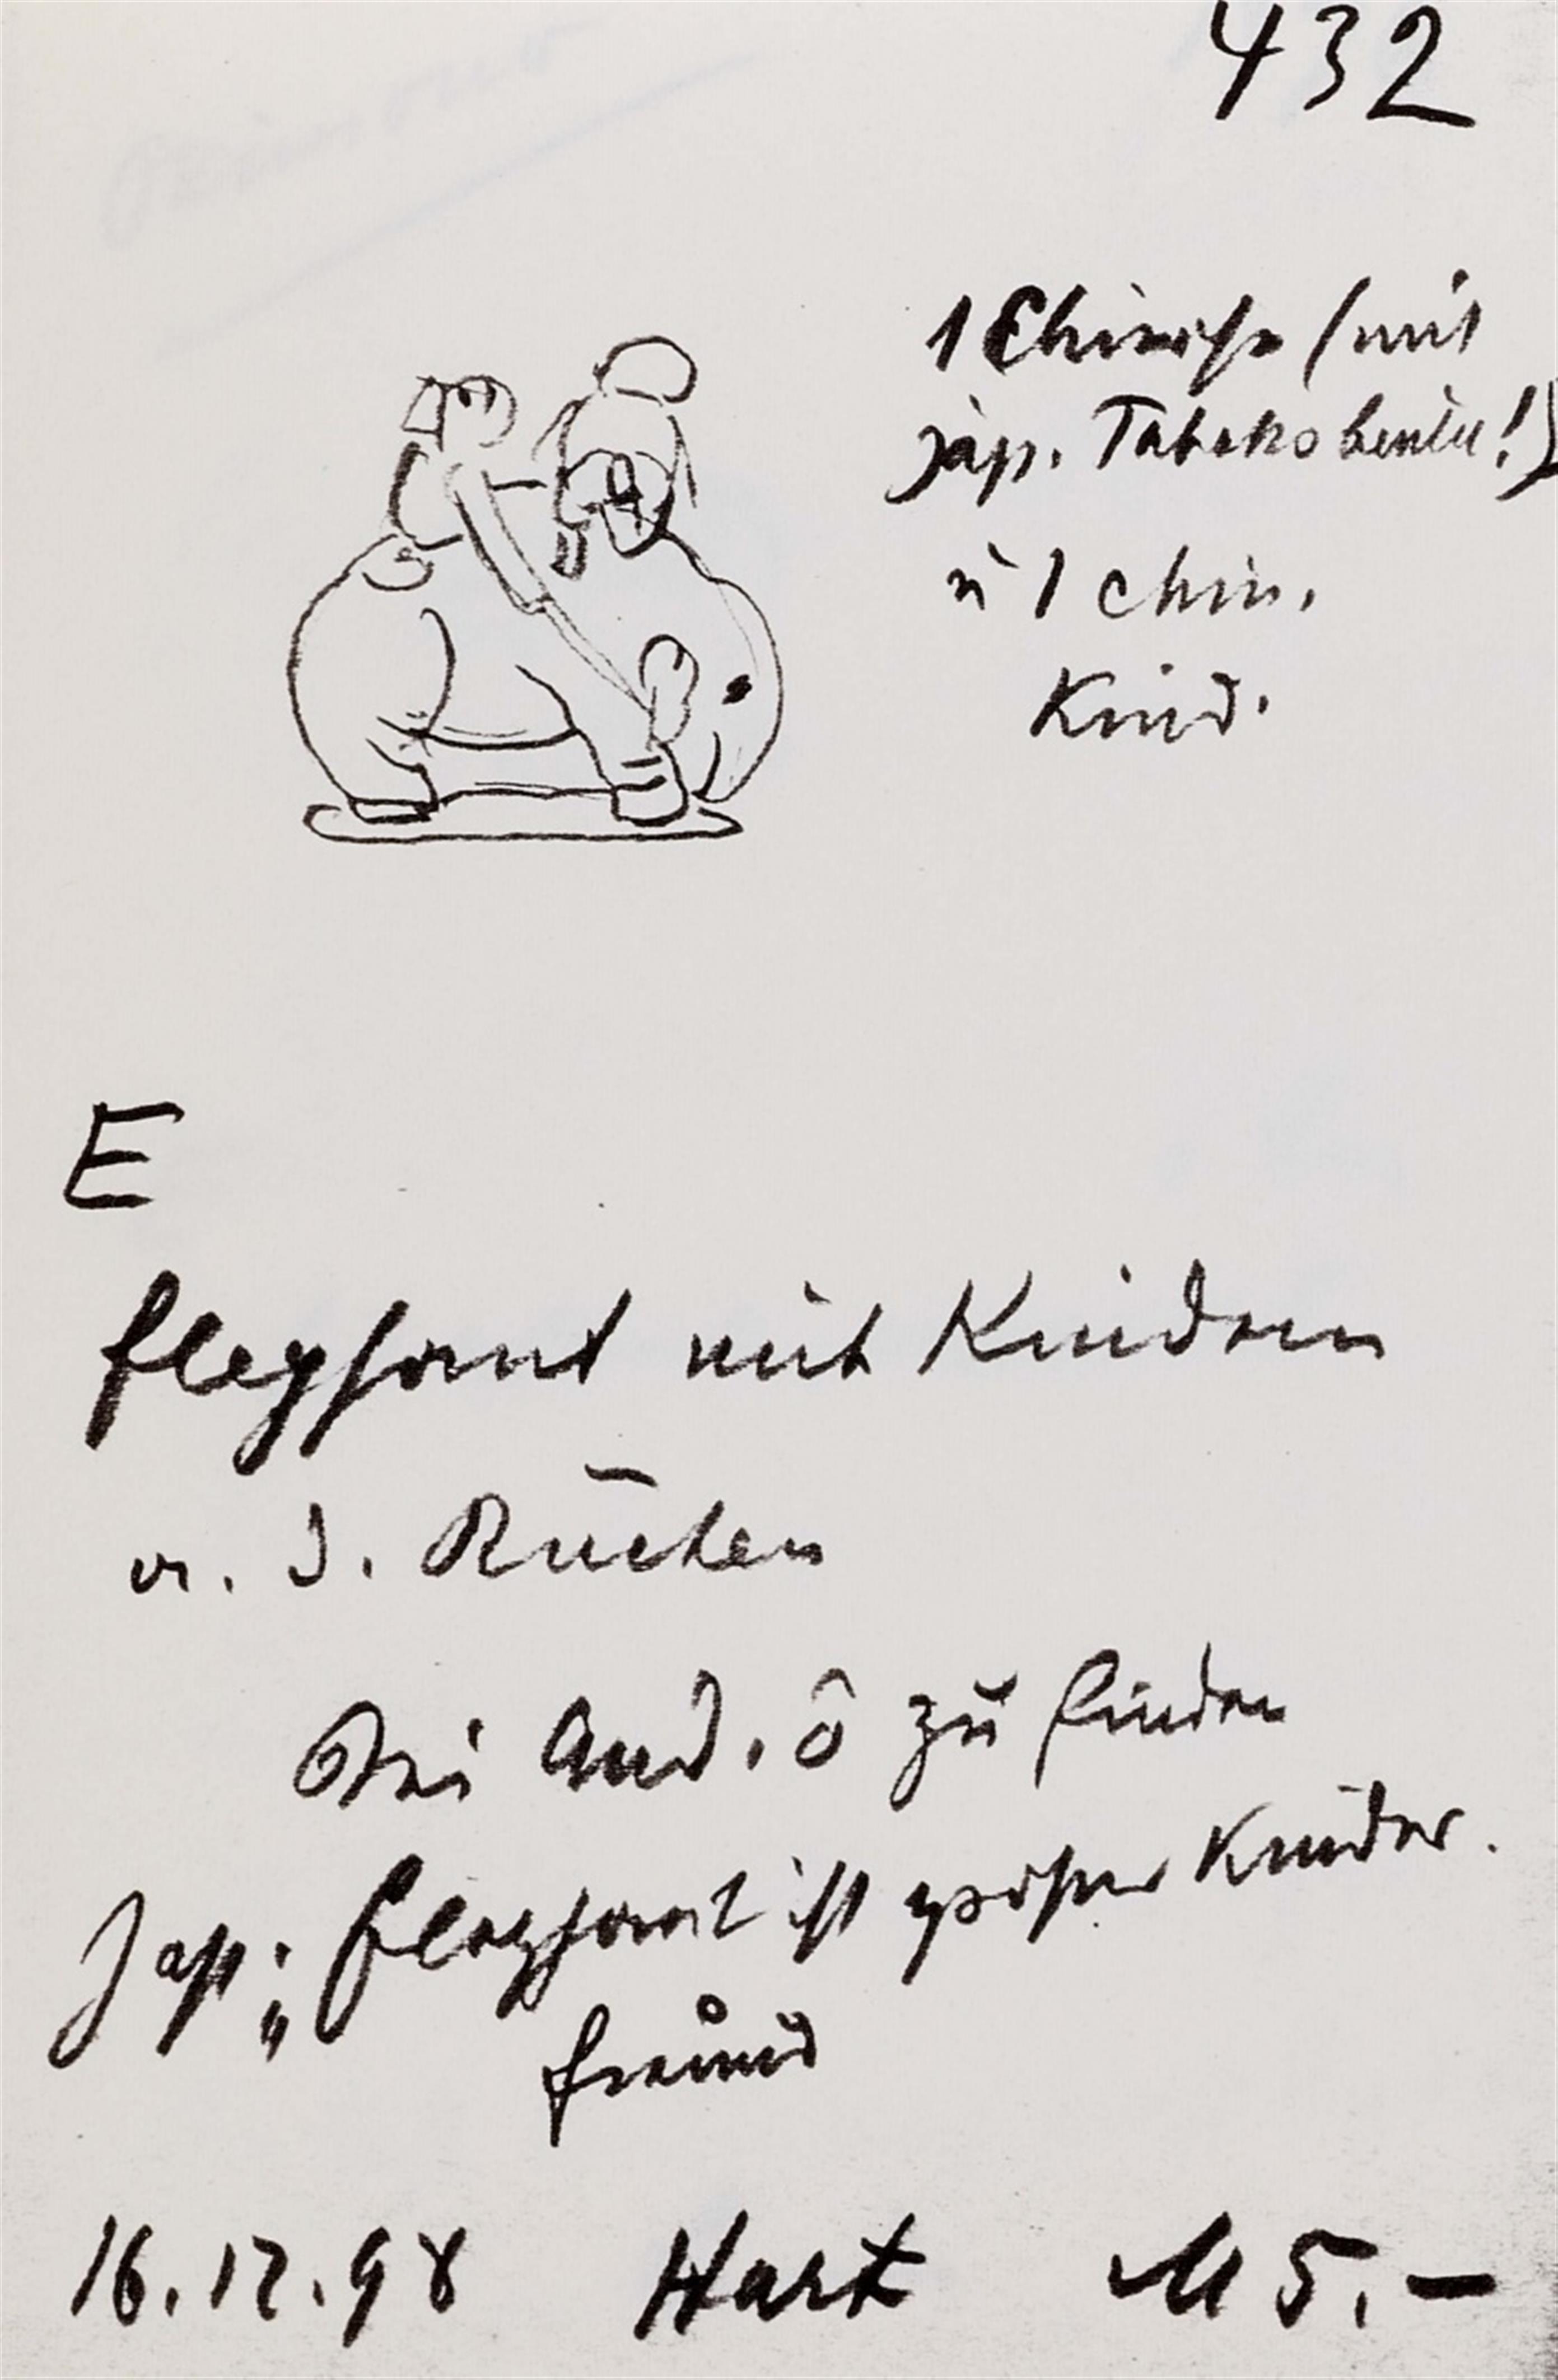 432
1 Chinese (mit
jap. Tabakobeutel!)
u 1 chin.
Kind.
E
Elephant mit Kindern
a. d. Rücken
Bei And. ô zu finden
Jap: „Elephant ist großer Kinder.
freund
16.12.98 Hart M 5.–